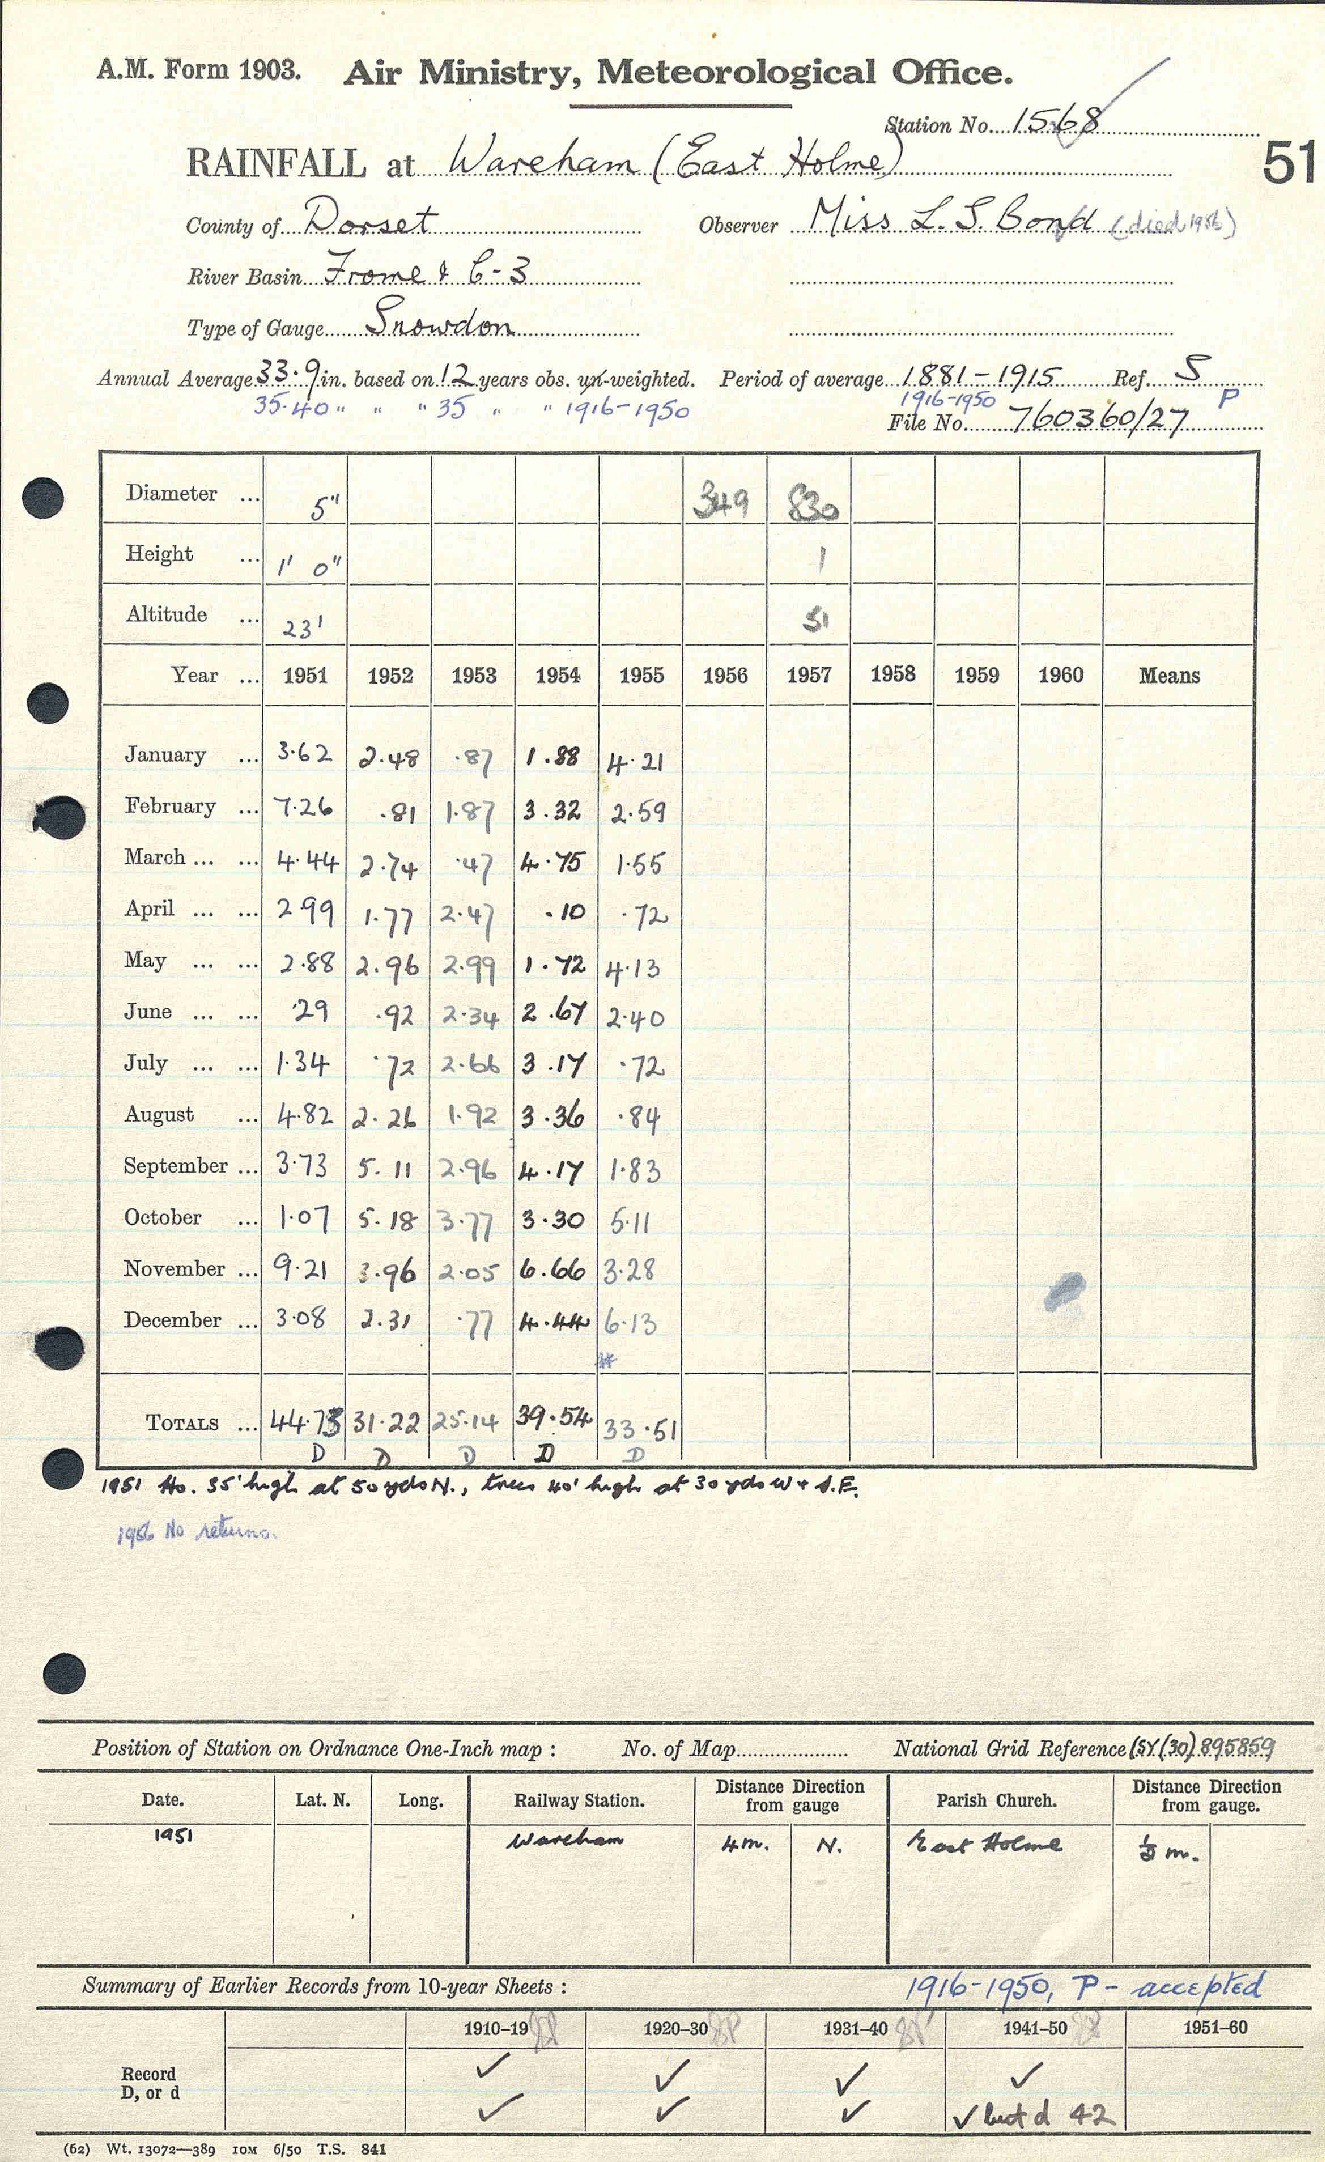 A.M. Form 1903. Air Ministry, Meteorological Office.
Station No. 1568
51
RAINFALL at Wareham (East Holme)
County of Dorset Observer Miss L. S. Bond (died 1956)
River Basin Frome & C-3
Type of Gauge Snowdon
Annual Average 33.9 in. based on 12 years obs. un-weighted. Period of average 1881-1915 Ref. S
35.40 " " " 35 " " 1916-1950 1916-1950 P
File No. 760360/27
Diameter ... 5" 349 830
Height ... 1' 0" 1
Altitude ... 23' 51
Year ... 1951 1952 1953 1954 1955 1956 1957 1958 1959 1960 Means
January ... 3.62 2.48 .87 1.88 4.21
February ... 7.26 .81 1.87 3.32 2.59
March ... ... 4.44 2.74 .47 4.75 1.55
April ... ... 2.99 1.77 2.47 .10 .72
May ... ... 2.88 2.96 2.99 1.72 4.13
June ... ... .29 .92 2.34 2.67 2.40
July ... ... 1.34 .72 2.66 3.17 .72
August ... 4.82 2.26 1.92 3.36 .84
September ... 3.73 5.11 2.96 4.17 1.83
October ... 1.07 5.18 3.77 3.30 5.11
November ... 9.21 3.96 2.05 6.66 3.28
December ... 3.08 2.31 .77 4.44 6.13
#
TOTALS ... 44.73 31.22 25.14 39.54 33.51
D D D D D
1951 Ho. 35' high at 50 yds N., trees 40' high at 30 yds W + S.E.
1956 No returns.
Position of Station on Ordnance One-Inch map : No. of Map National Grid Reference (SY(30) 895859
Date. Lat. N. Long. Railway Station. Distance Direction from gauge Parish Church. Distance Direction from gauge.
1951 Wareham 4m. N. East Holme m.
Summary of Earlier Records from 10-year Sheets : 1916-1950, P - accepted
1910–19 1920–30 1931–40 1941–50 1951–60
Record ✓ ✓ ✓ ✓
D, or d ✓ ✓ ✓ ✓ but d 42
(62) Wt. 13072—389 10M 6/50 T.S. 841